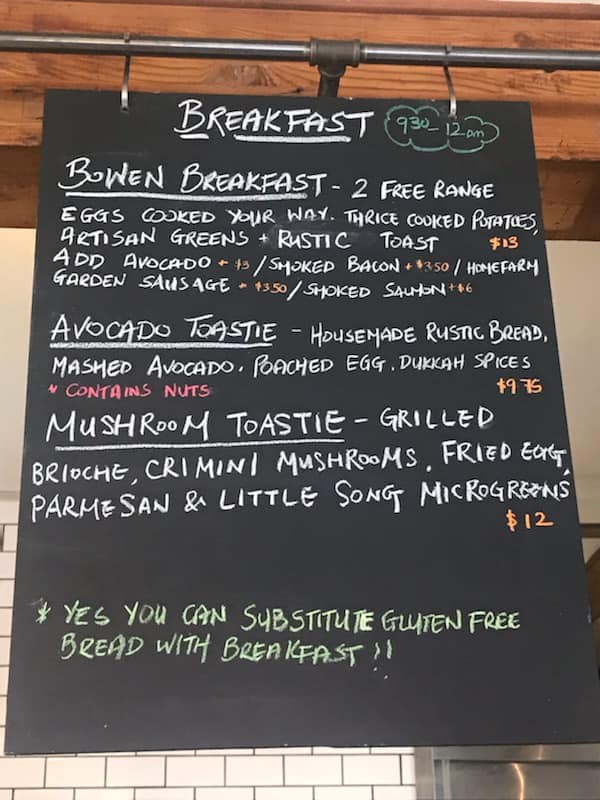 BREAKFAST 930-12pm
BOWEN BREAKFAST - 2 FREE RANGE
EGGS COOKED YOUR WAY. THRICE COOKED POTATOES,
ARTISAN GREENS + RUSTIC TOAST $13
ADD AVOCADO + $3 / SMOKED BACON + $350 / HOMEFARM
GARDEN SAUSAGE + $350 / SMOKED SALMON + $6
AVOCADO TOASTIE - HOUSEMADE RUSTIC BREAD,
MASHED AVOCADO, POACHED EGG, DUKKAH SPICES
* CONTAINS NUTS $975
MUSHROOM TOASTIE - GRILLED
BRIOCHE, CRIMINI MUSHROOMS, FRIED EGG,
PARMESAN & LITTLE SONG MICROGREENS
$12
* YES YOU CAN SUBSTITUTE GLUTEN FREE
BREAD WITH BREAKFAST!!